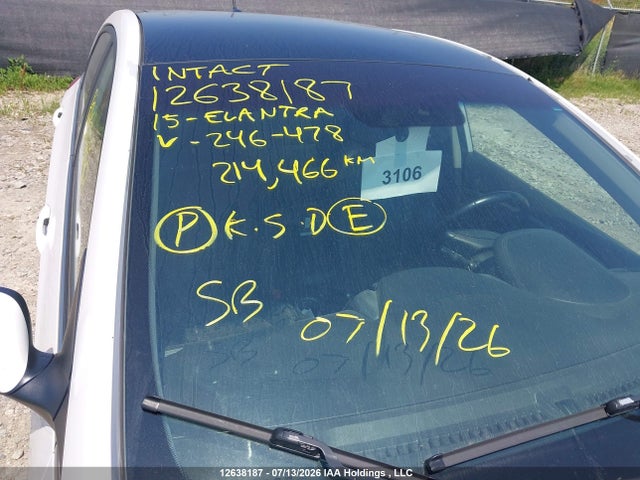 INTACT
12638187
15-ELANTRA
V-246-478
214,466 KM
3106
P K.S.D E
SB
07/13/26
12638187 - 07/13/2026 IAA Holdings , LLC